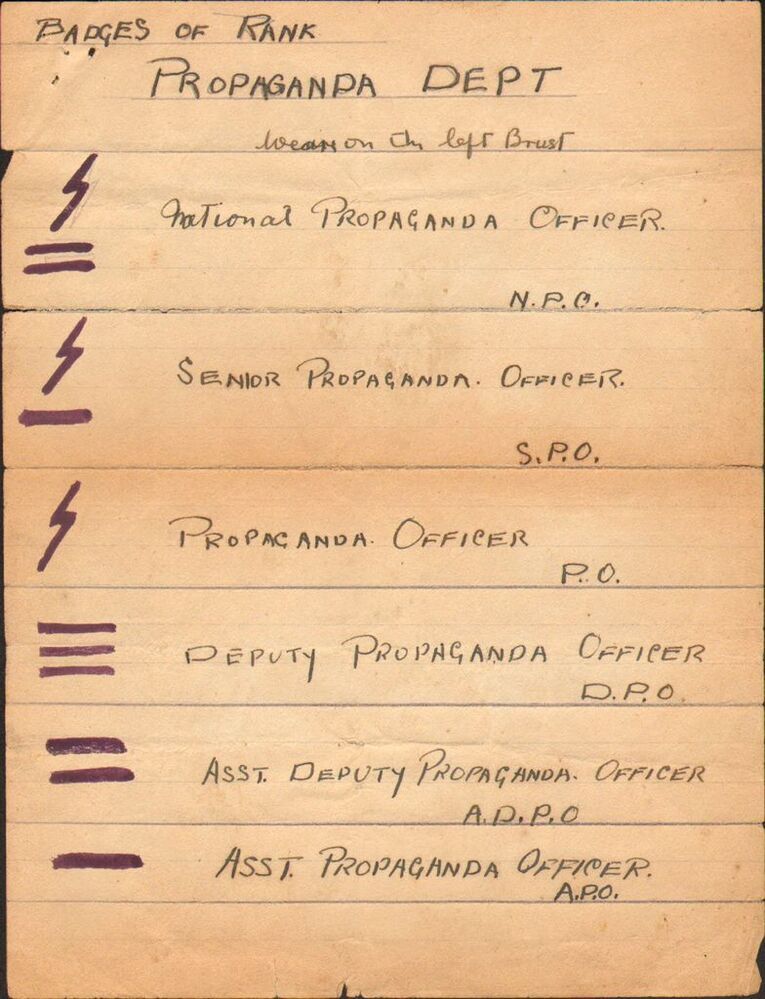 BADGES OF RANK
PROPAGANDA DEPT
Wearn on the left Brest
National PROPAGANDA OFFICER.
N.P.O.
SENIOR PROPAGANDA. OFFICER.
S.P.O.
PROPAGANDA. OFFICER
P.O.
DEPUTY PROPAGANDA OFFICER
D.P.O.
ASST. DEPUTY PROPAGANDA. OFFICER
A.D.P.O
ASST. PROPAGANDA OFFICER.
A.P.O.